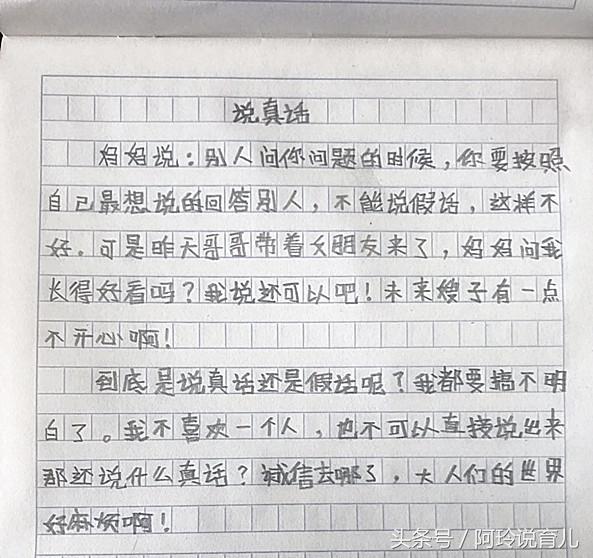 说真话
妈妈说：别人问你问题的时候，你要按照
自己最想说的回答别人，不能说假话，这样不
好。可是昨天哥哥带着女朋友来了，妈妈问我
长得好看吗？我说还可以吧！未来嫂子有一点
不开心啊！
到底是说真话还是假话呢？我都要搞不明
白了。我不喜欢一个人，也不可以直接说出来
那还说什么真话？诚信去哪了，大人们的世界
好麻烦啊！
头条号／阿玲说育儿